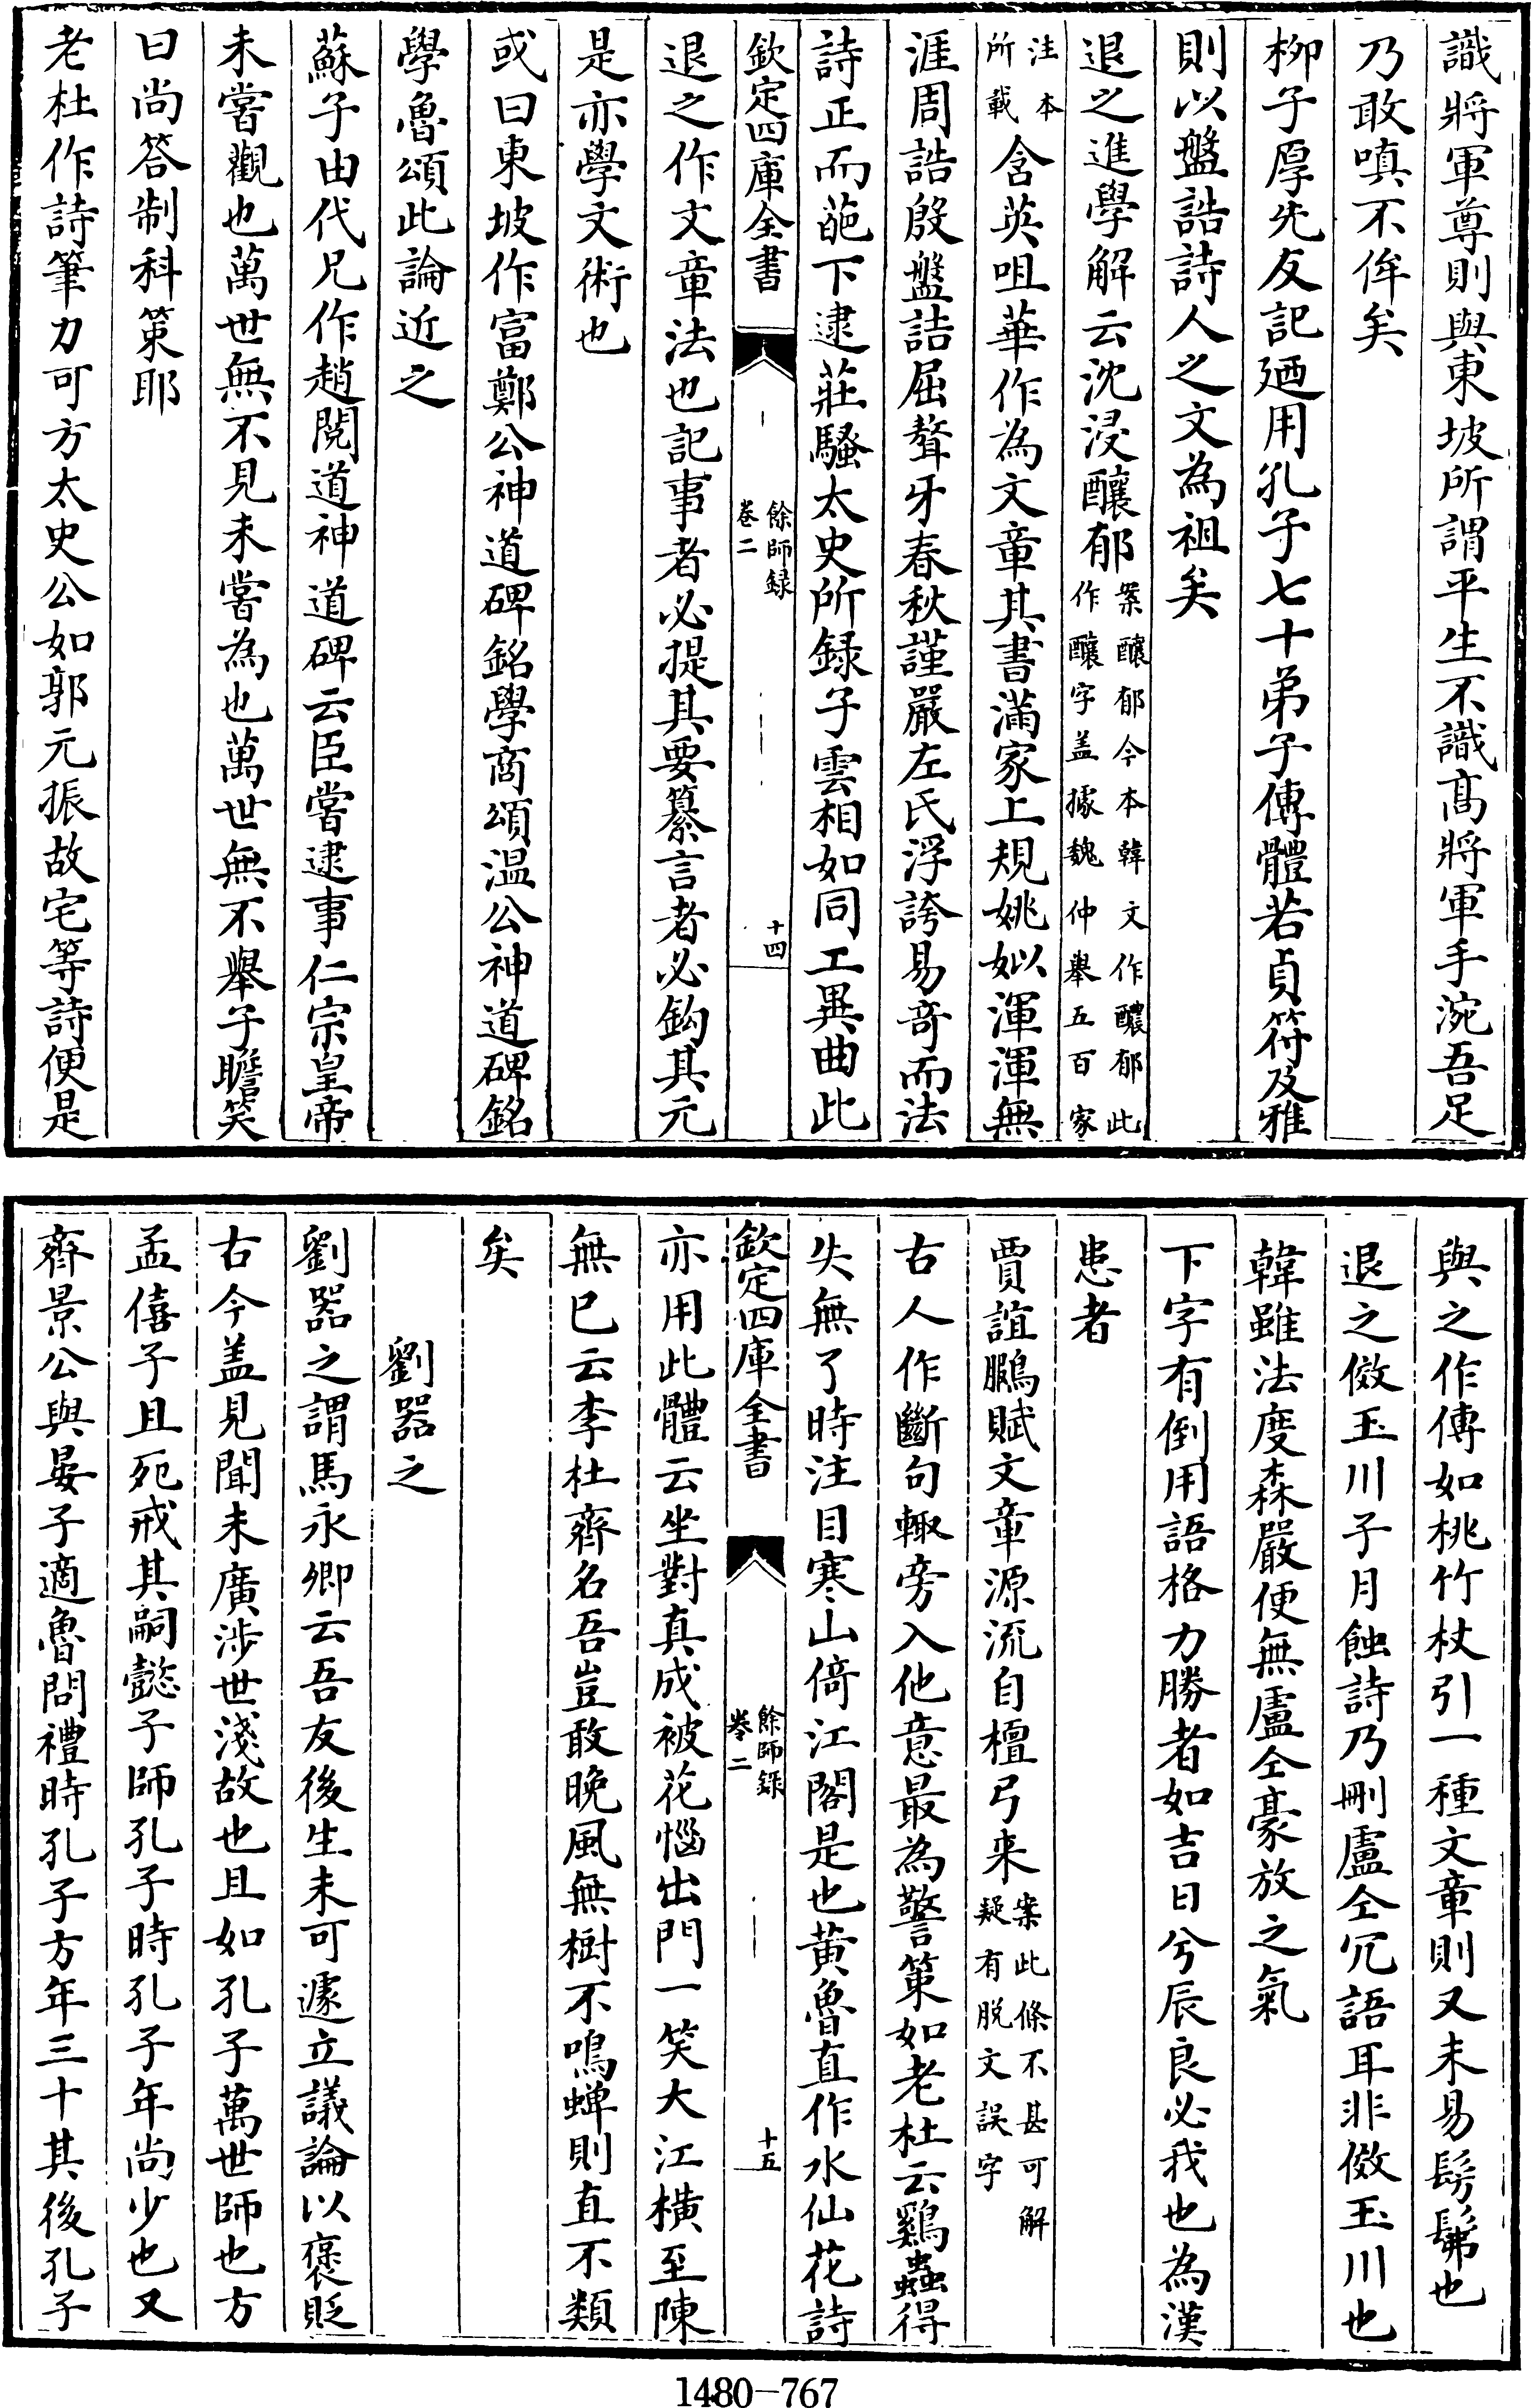 識將軍尊則與東坡所謂平生不識髙將軍手涴吾足
乃敢嗔不侔矣
柳子厚先友記廼用孔子七十弟子傳體若貞符及雅
則以盤誥詩人之文為祖矣
退之進學解云沈浸釀郁案釀郁今本韓文作醲郁此
作釀字盖據魏仲舉五百家
注本
所載含英咀華作為文章其書滿家上規姚姒渾渾無
涯周誥殷盤詰屈聱牙春秋謹嚴左氏浮誇易奇而法
詩正而葩下逮莊騷太史所録子雲相如同工異曲此
欽定四庫全書
餘師録
卷二
十四
退之作文章法也記事者必提其要纂言者必鈎其元
是亦學文術也
或曰東坡作富鄭公神道碑銘學商頌温公神道碑銘
學魯頌此論近之
蘇子由代兄作趙閲道神道碑云臣嘗逮事仁宗皇帝
未嘗觀也萬世無不見未嘗為也萬世無不舉子瞻笑
曰尚答制科策耶
老杜作詩筆力可方太史公如郭元振故宅等詩便是
與之作傳如桃竹杖引一種文章則又未易髣髴也
退之傚玉川子月蝕詩乃刪盧仝冗語耳非傚玉川也
韓雖法度森嚴便無盧仝豪放之氣
下字有倒用語格力勝者如吉日兮辰良必我也為漢
患者
賈誼鵩賦文章源流自檀弓来案此條不甚可解
疑有脱文誤字
古人作斷句輙旁入他意最為警策如老杜云鷄蟲得
失無了時注目寒山倚江閣是也黄魯直作水仙花詩
欽定四庫全書
餘師録
卷二
十五
亦用此體云坐對真成被花惱出門一笑大江橫至陳
無已云李杜齊名吾豈敢晚風無樹不鳴蟬則直不類
矣
劉器之
劉器之謂馬永卿云吾友後生未可遽立議論以褒貶
古今盖見聞未廣涉世淺故也且如孔子萬世師也方
孟僖子且死戒其嗣懿子師孔子時孔子年尚少也又
齊景公與晏子適魯問禮時孔子方年三十其後孔子
1480-767